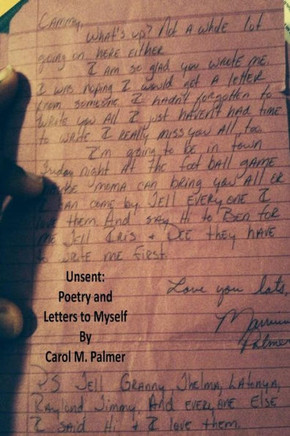 Cammy,
What's up? Not a whole lot
going on here either
I am so glad you wrote me.
I was hoping I would get a letter
from someone I hadn't forgotten to
write you all I just haven't had time
to write I really miss you all, too.
I'm going to be in town
Friday night at the foot ball game
mama can bring you all or
can come by Tell everyone I
love them And say Hi to Ben for
me Tell Iris & Dee they have
to write me first.
Love you lots,
Palmer
Unsent:
Poetry and
Letters to Myself
By
Carol M. Palmer
PS Tell Granny Thelma, Latonya,
Ray and Jimmy, And everyone Else
I said Hi & I love them.